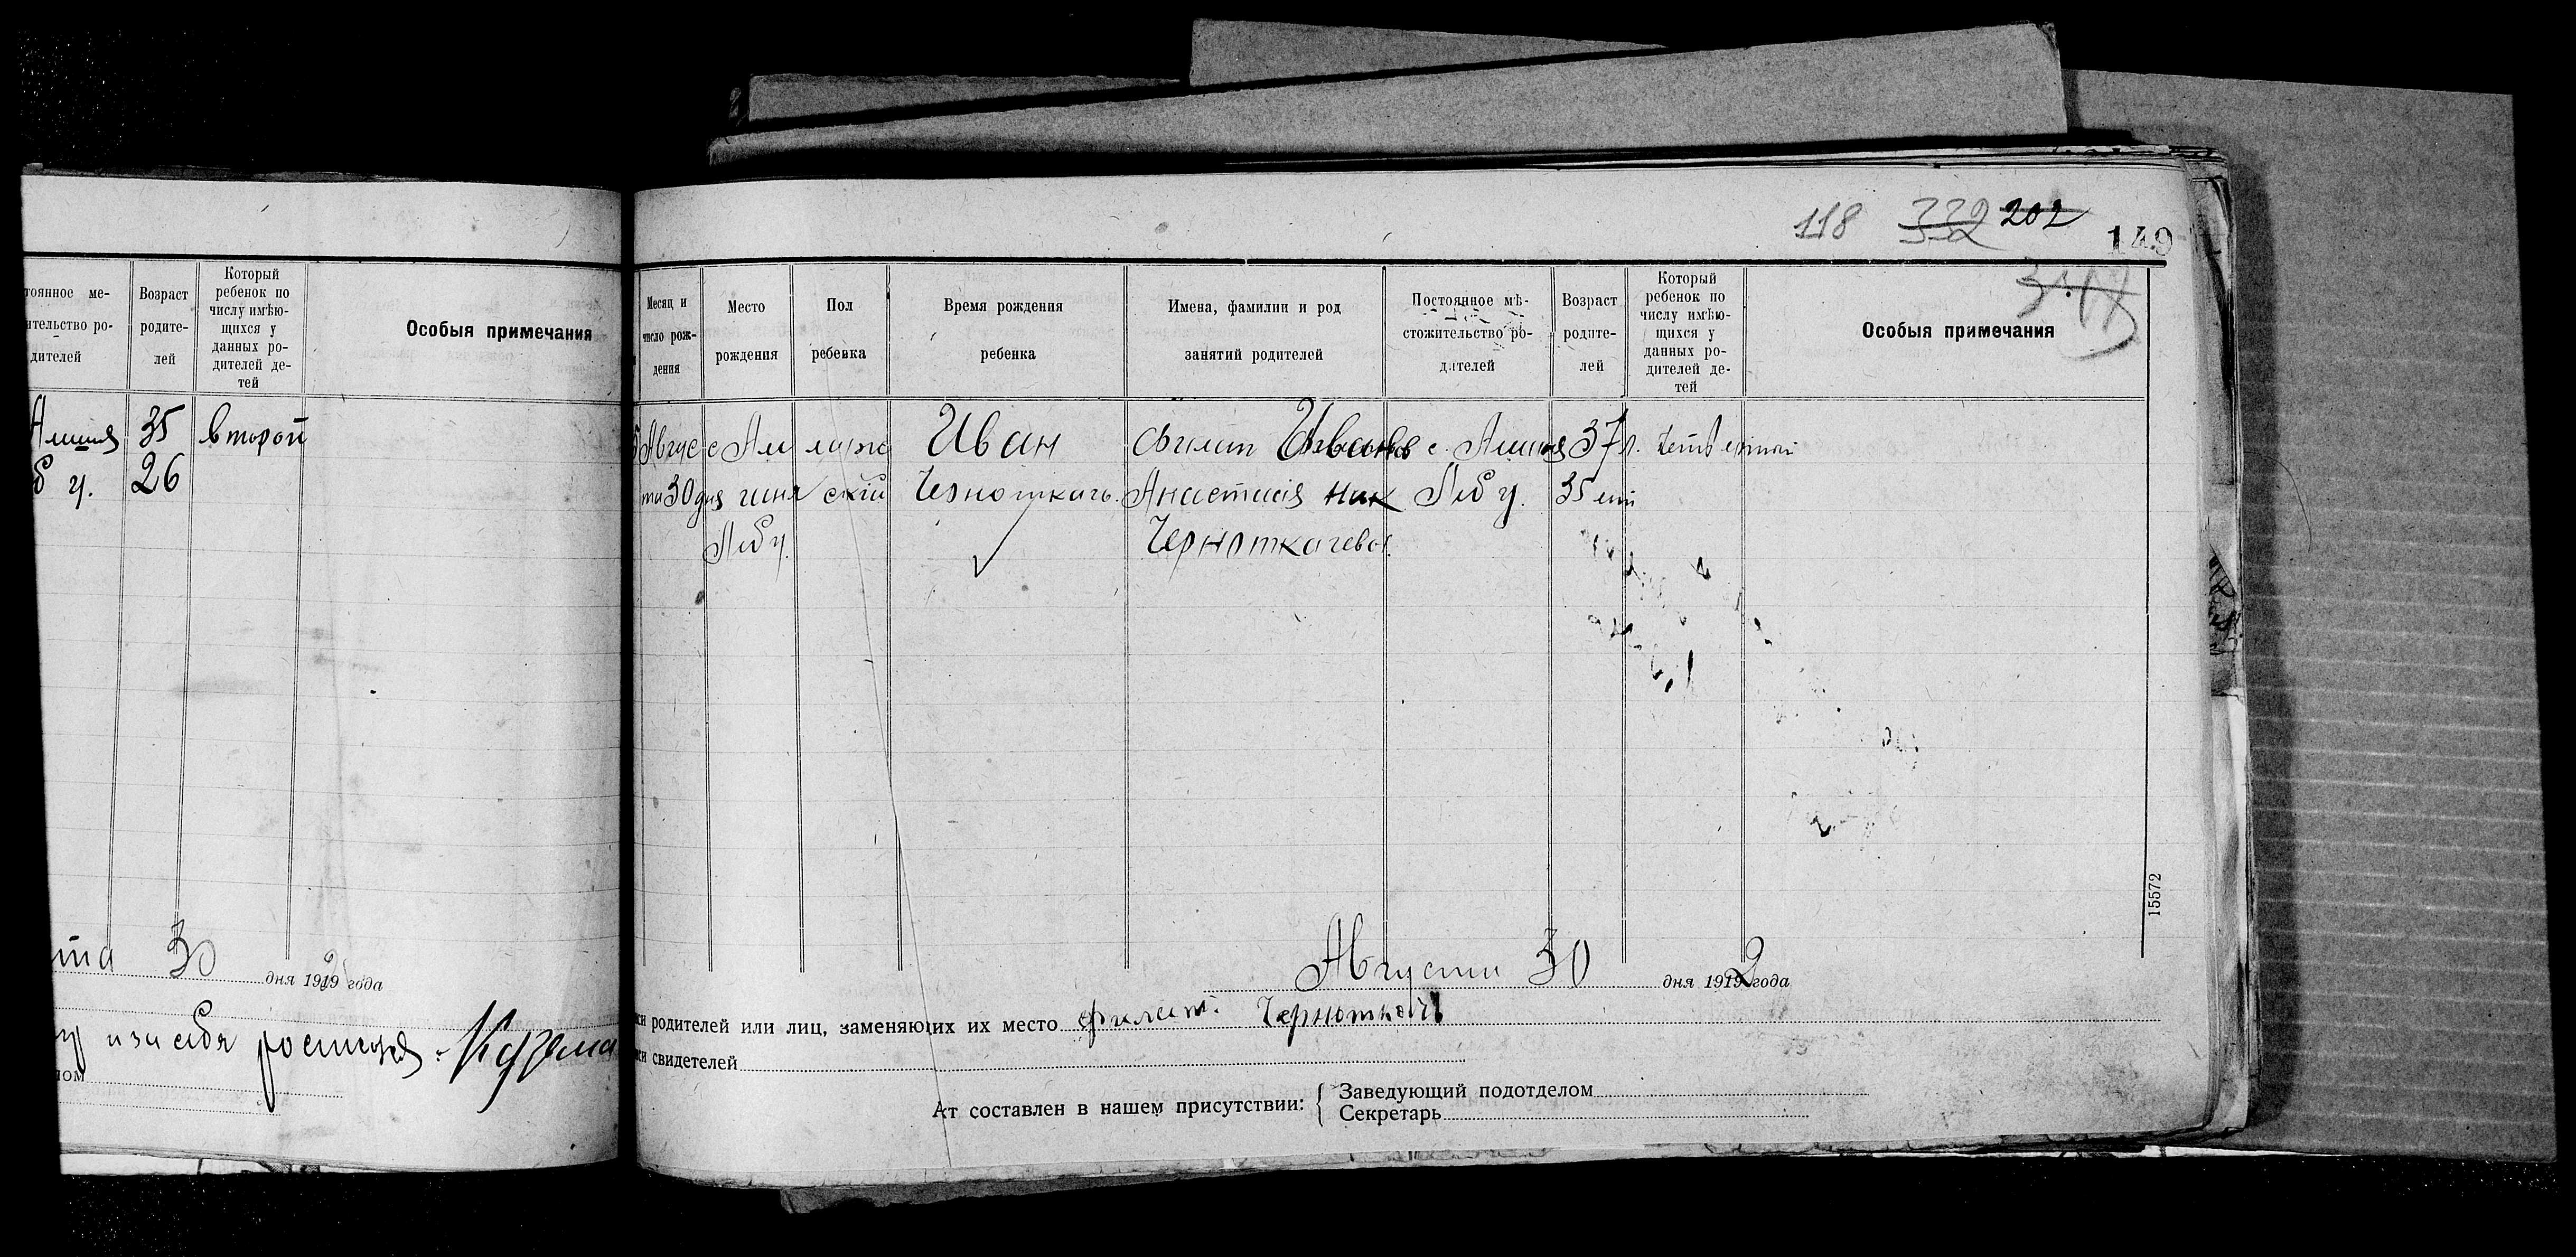 118 332 202
149
тоянное ме-
ительство ро-
дителей
Возраст
родите-
лей
Который
ребенок по
числу имѣю-
щихся у
данных ро-
дителей де-
тей
Особыя примечания
35
второй
26
та 30 дня 1919 года
росписуюсь
Месяц и
число рож-
дения
Место
рождения
Пол
ребенка
Время рождения
ребенка
Имена, фамилии и род
занятий родителей
Постоянное мѣ-
стожительство ро-
дителей
Возраст
родите-
лей
Который
ребенок по
числу имѣю-
щихся у
данных ро-
дителей де-
тей
Особыя примечания
Авгус
та 30 дня
Леб у.
ский
Иван
Черноткачъ.
Филип Иванов
Анастасія Ник
Черноткачева.
Леб у.
37 л.
35 лет
15572
Августа 30 дня 1919 2 года
си родителей или лиц, заменяющих их место Филип Черноткачъ
си свидетелей
Ат составлен в нашем присутствии:
Заведующий подотделом
Секретарь